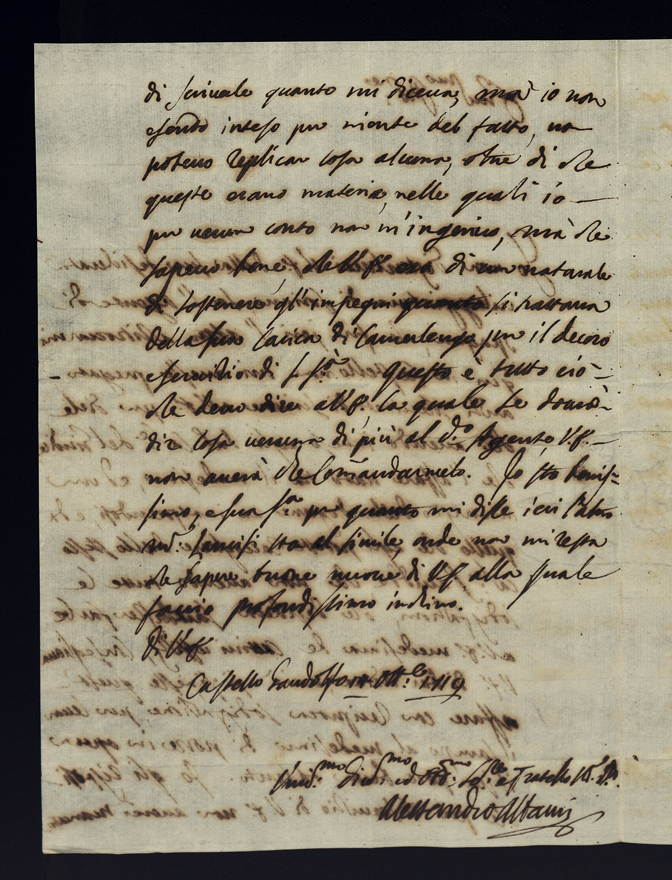 di scriverle quanto mi diceva, mà io non
essendo inteso per niente del fatto, non
potevo replicar cosa alcuna, oltre di che
queste erano materie, nelle quali io
per verun conto non m'ingerivo, mà che
sapevo bene, che V.S. era di un naturale
di sostenere gl'impegni quanto si trattava
della sua Carica di Camerlengo per il decoro
e servitio di S. Stà. Questo è tutto ciò
che devo dire a V.S. la quale se doverò
dir cosa veruna di più al dº. Agente, V.S.
non averà che Comandarmelo. Io sto benis-
simo, e sua Stà per quanto mi disse ieri l'altro
Lancisi sta al simile, onde non mi resta
che sapere buone nuove di V.S. alla quale
faccio profondissimo inchino.
Di V.S.
Castello Gandolfo Ott.e 1719
Um.mo Di.mo ed Obb.mo Se.re e Fratello
Alessandro Albani